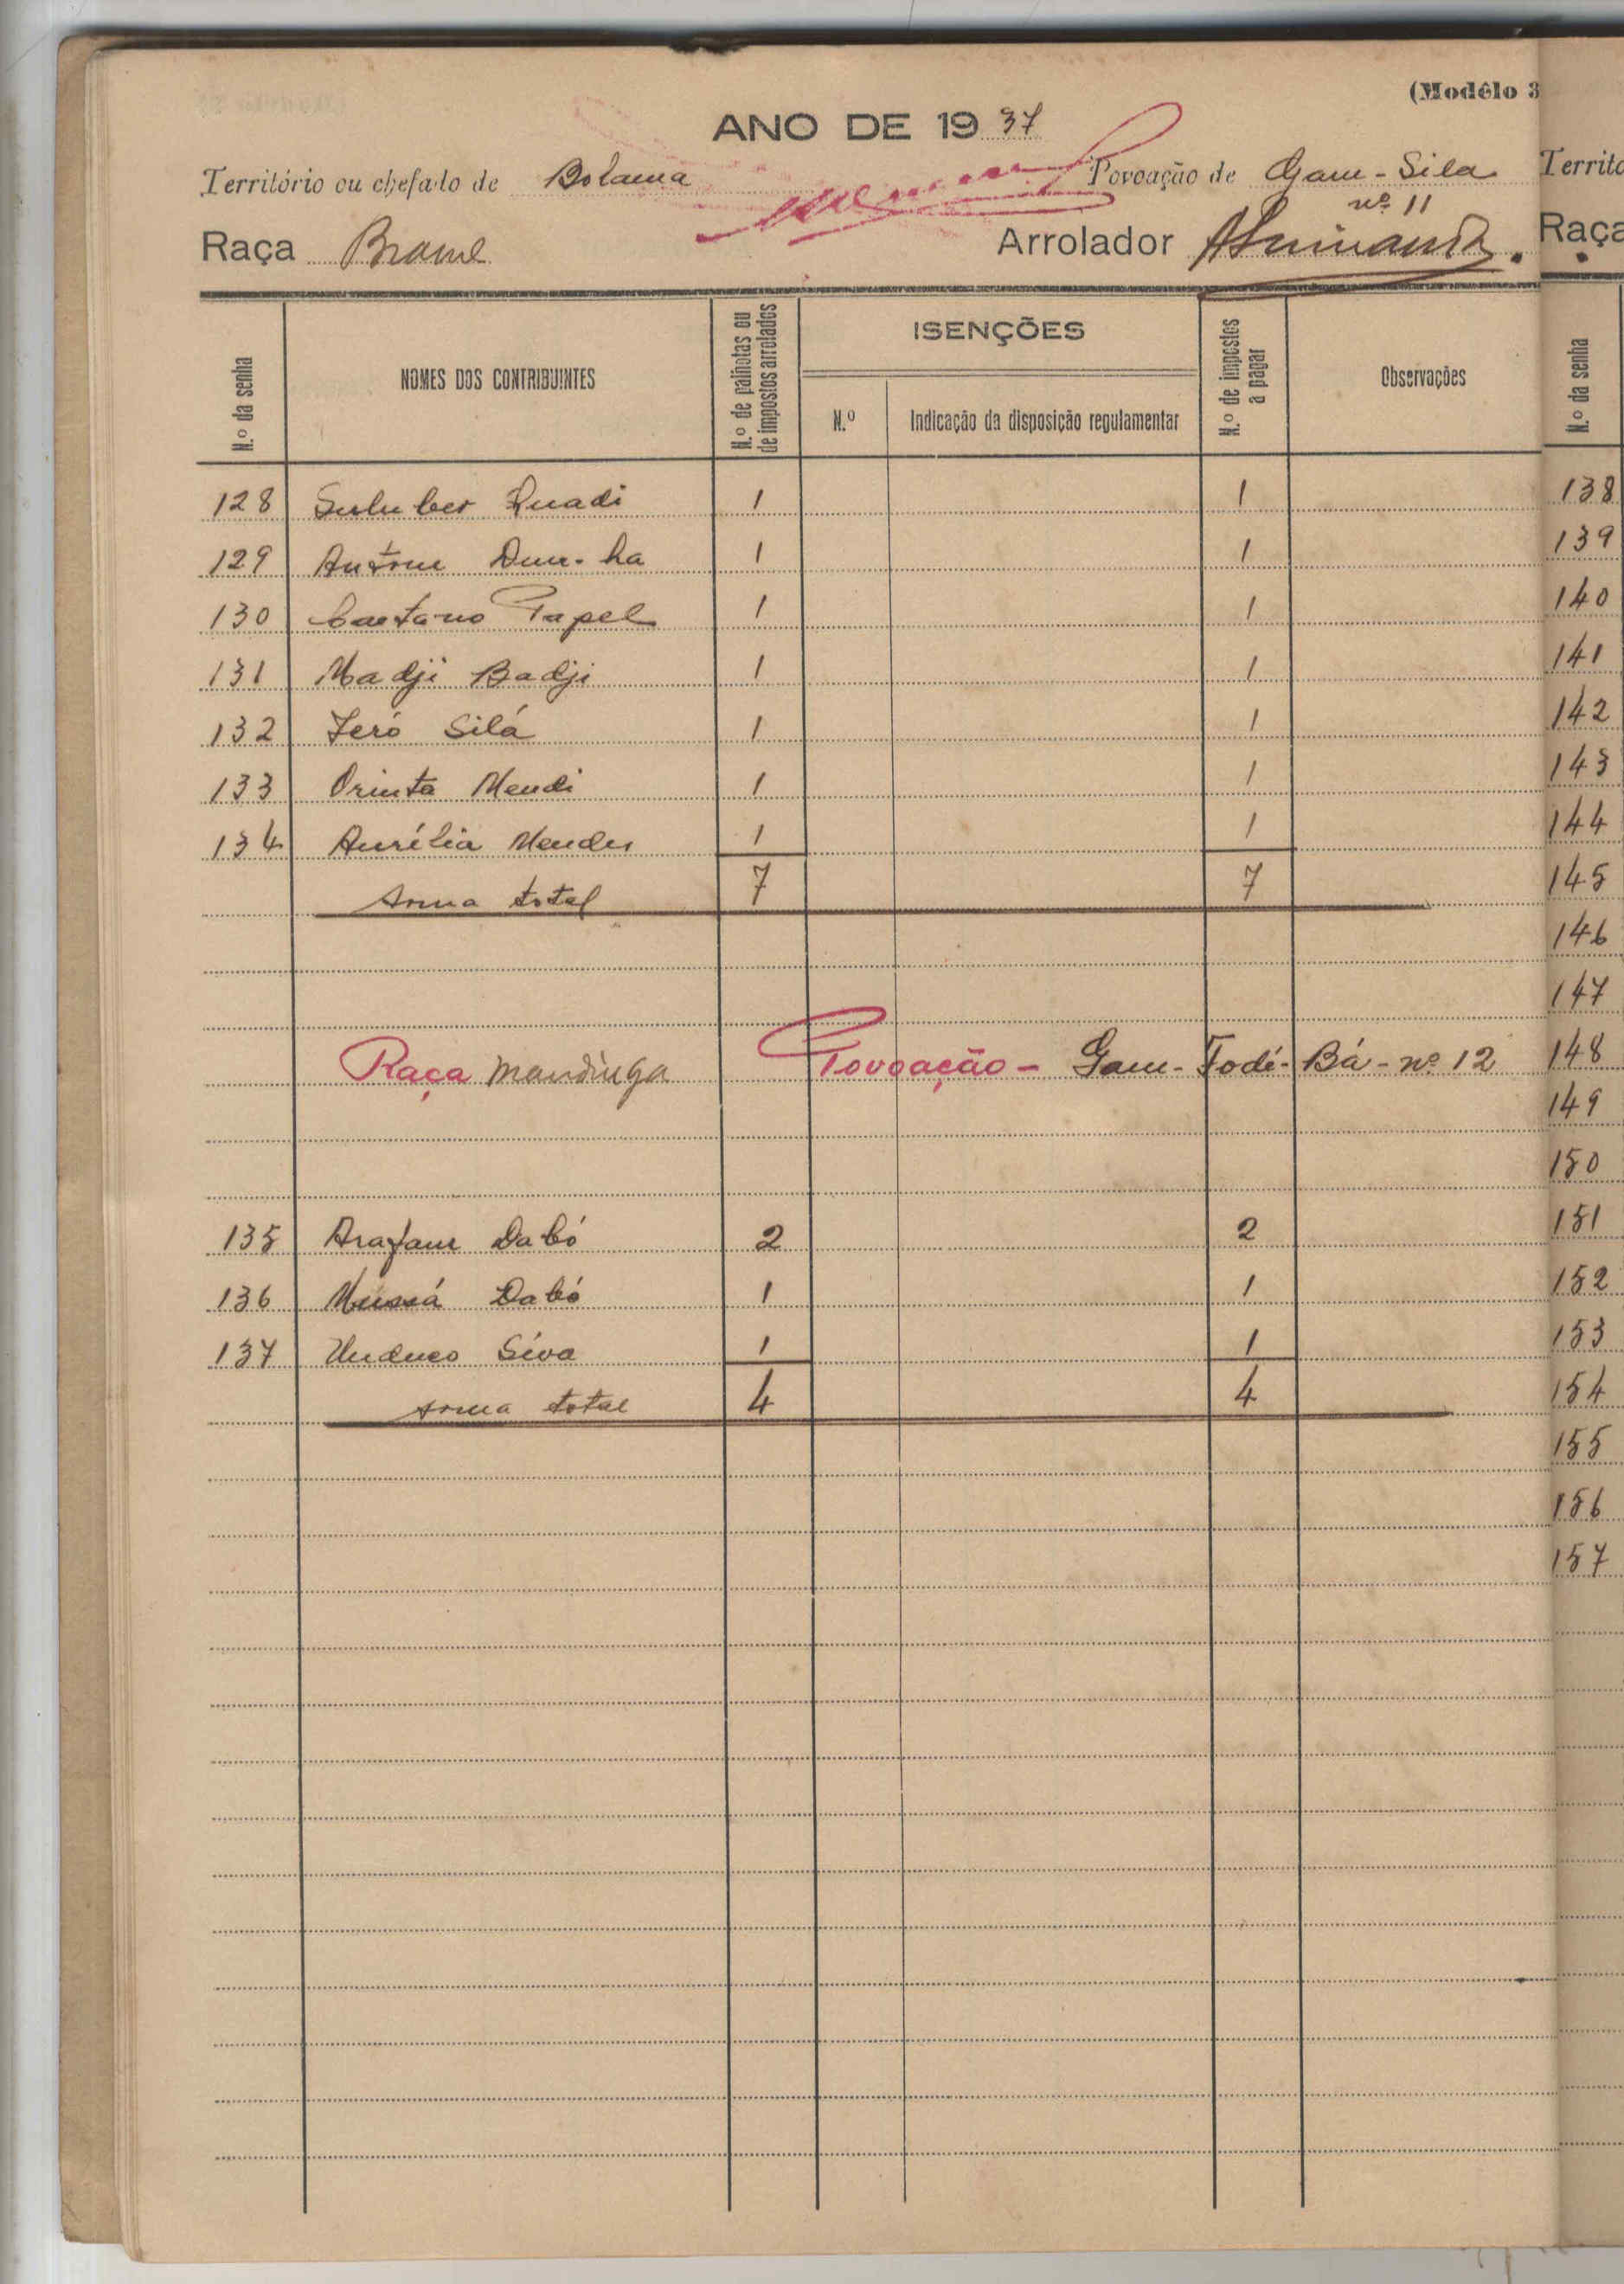 (Modêlo 3
ANO DE 19 37
Território ou chefado de Bolama Povoação de Gam-Sila
nº 11
Raça Brame Arrolador
N.º da senha NOMES DOS CONTRIBUINTES N.º de palhotas ou de impostos arrolados ISENÇÕES N.º de impostos a pagar Observações
N.º Indicação da disposição regulamentar
128 1 1
129 1 1
130 Caetano Papel 1 1
131 Madji Badji 1 1
132 Jeró Silá 1 1
133 Mendi 1 1
134 Aurélia Mendes 1 1
Soma total 7 7
Raça Mandinga Povoação - Gam-Fodé-Bá - nº 12
135 Arafam Dabó 2 2
136 Mussá Dabó 1 1
137 1 1
Soma total 4 4
Territó
Raça
N.º da senha
138
139
140
141
142
143
144
145
146
147
148
149
150
151
152
153
154
155
156
157